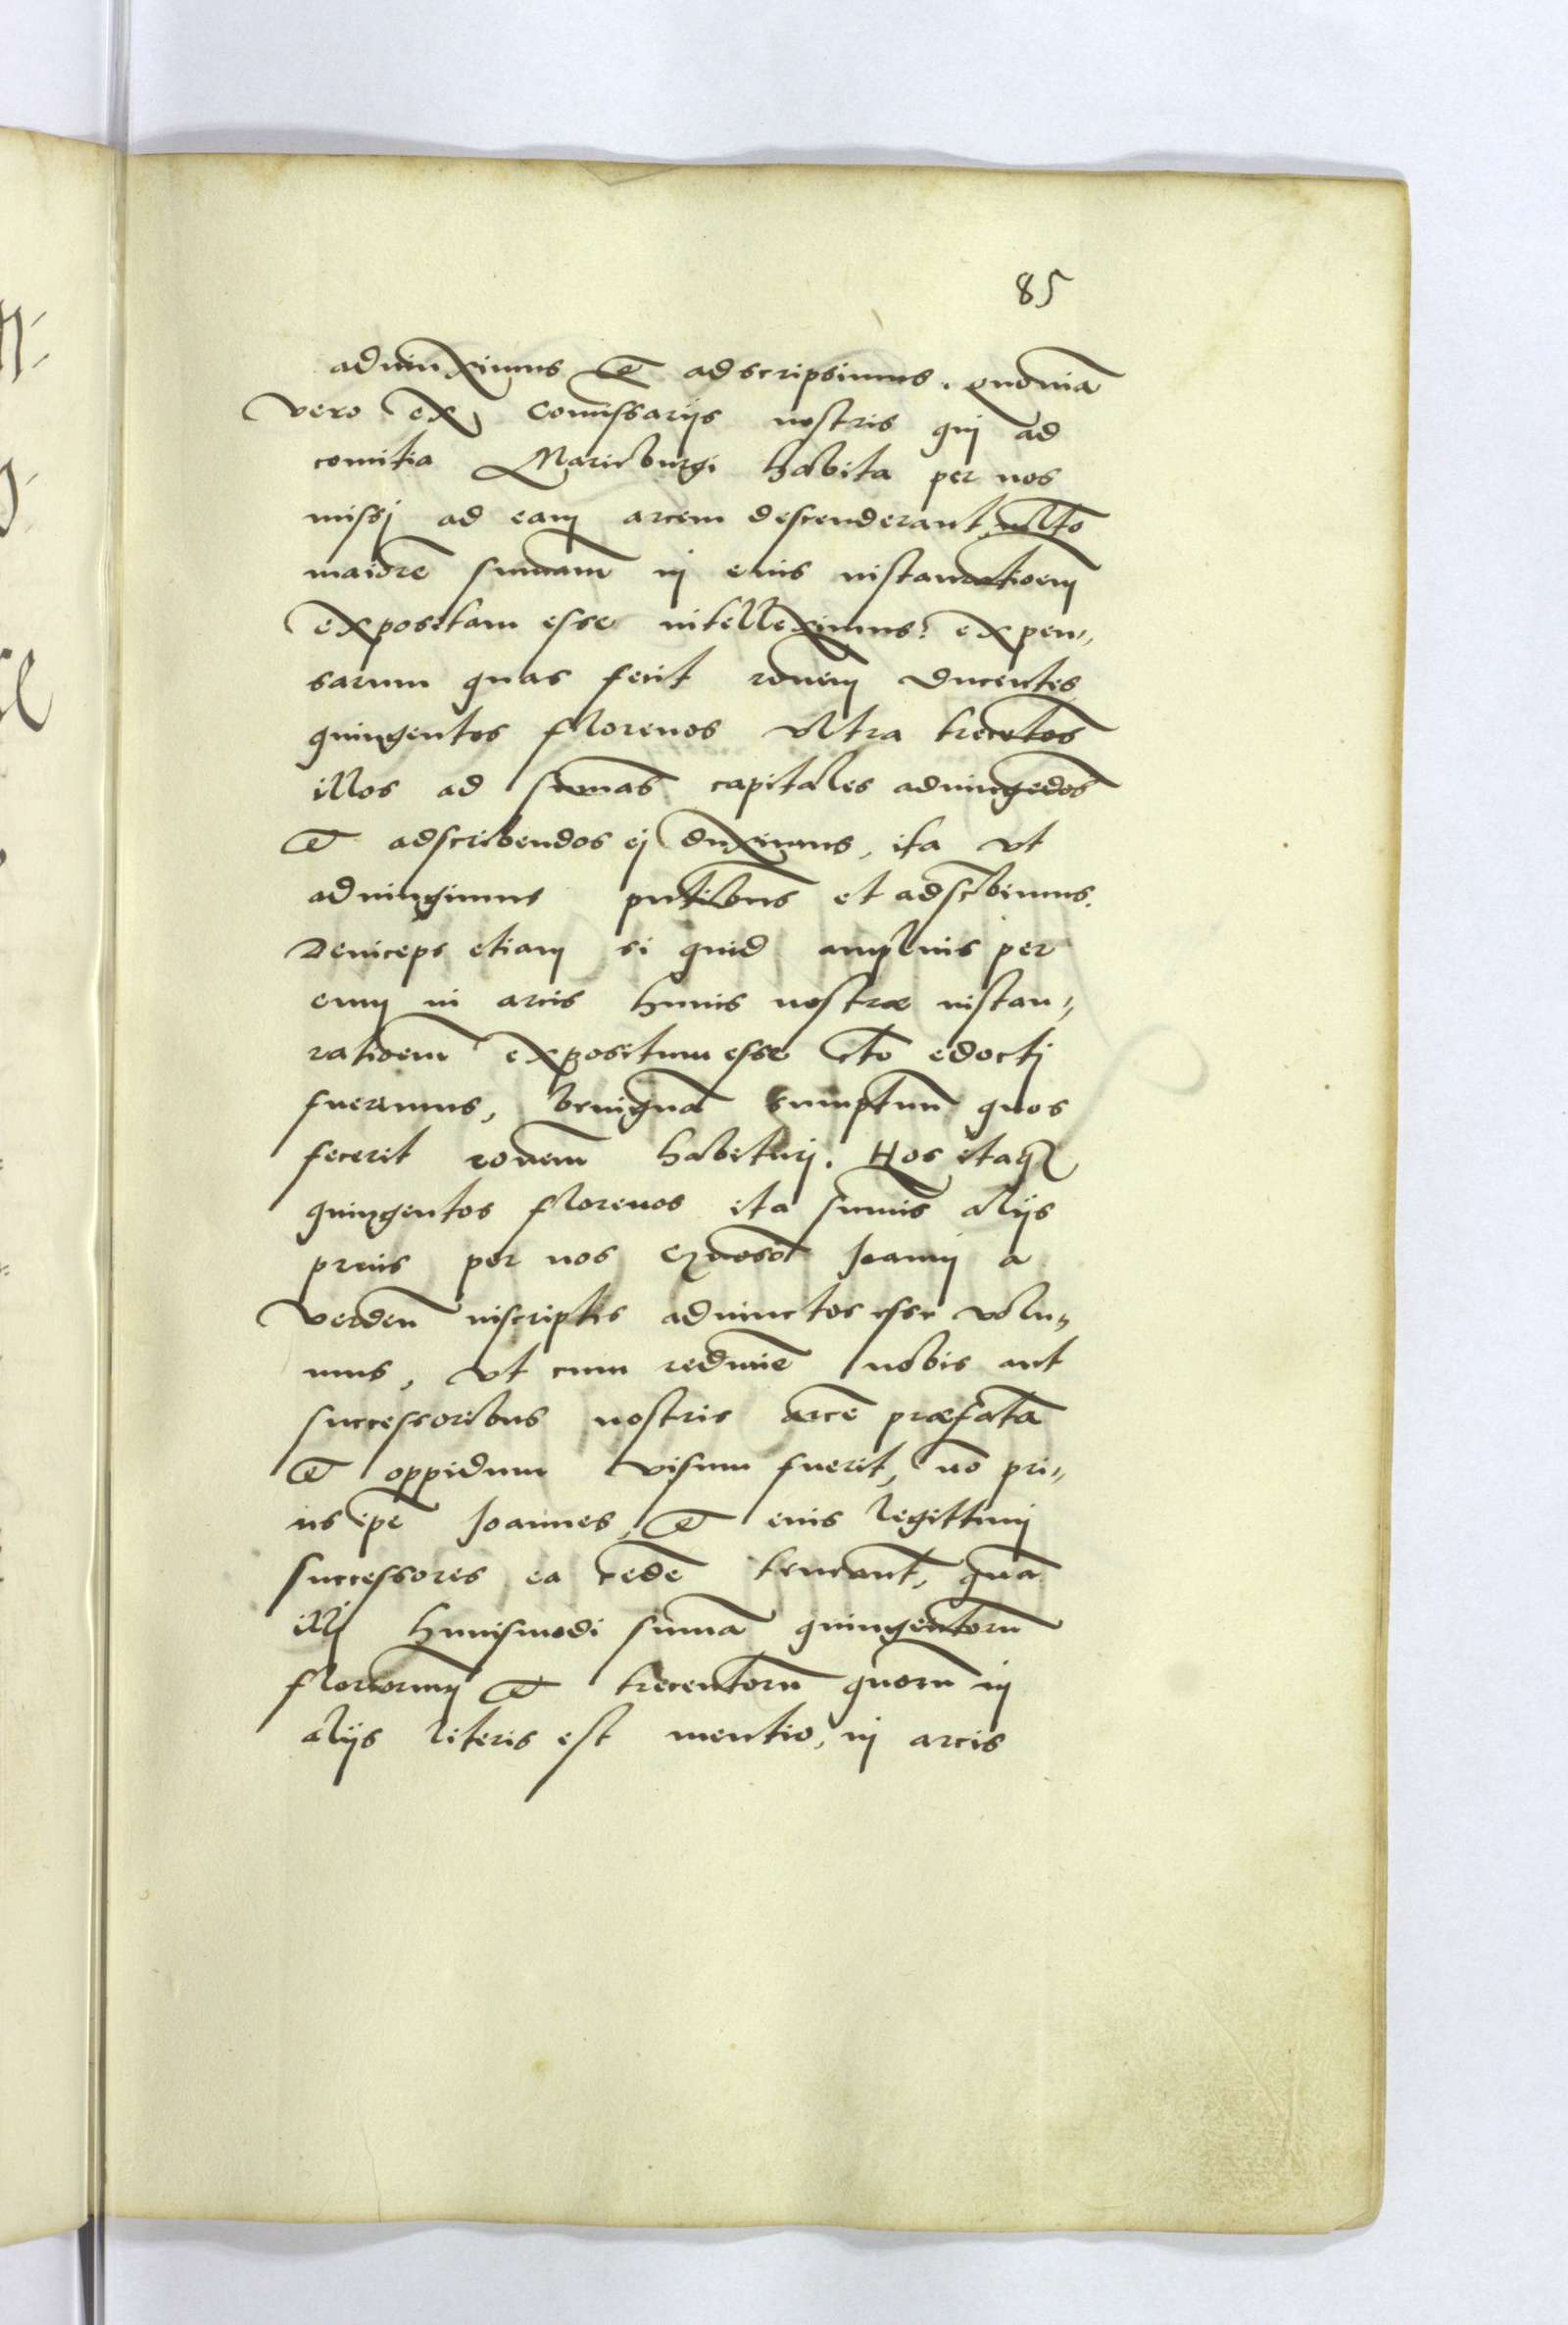 85
adiunximus et adscripsimus. quoniã
vero ex Comissarijs nostris qui ad
comitia Marieburgi habita per nos
missi ad eam arcem descenderant, mlto
maiorẽ summam in eius instauratioem
expositam esse intelleximus: expen„
sarum quas fecit rõnem ducentes
quingentos florenos vltra trecẽtos
illos ad sumas capitales adiungẽdos
et adscribendos ei duximus, ita vt
adiungimus pñtibus et adscbimus.
Deinceps etiam si quid amplius per
eum in arcis huius nostræ instau„
ratioem expositum esse cto edocti
fuerimus, benignã sumptuũ quos
fecerit rõnem habituri. Hos itaq3
quingentos florenos ita sumis alijs
prius per nos gñoso Joanni a
Verden inscriptis adiunctos esse volu„
mus, vt cum redimẽ nobis aut
successoribus nostris arcẽ præfatã
et oppidum visum fuerit, nõ pri„
us ipẽ Joannes, et eius legittimi
successores ea cedẽ teneant, quã
illi huiusmodi sumã quingentorũ
florenorum et trecentorũ quorũ in
alijs literis est mentio, in arcis